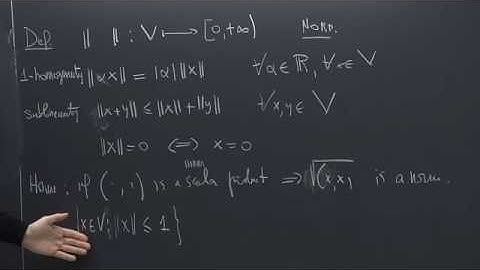 Def ‖ ‖ : V ⟼ [0,+∞) NORM.
1-homogeneity ‖αx‖ = |α|‖x‖ ∀α∈ℝ, ∀x∈V
sublinearity ‖x+y‖ ≤ ‖x‖+‖y‖ ∀x,y ∈ V
‖x‖=0 ⟺ x=0
if (·,·) is a scalar product ⟹ √(x,x) is a norm.
{x∈V; ‖x‖ ≤ 1}